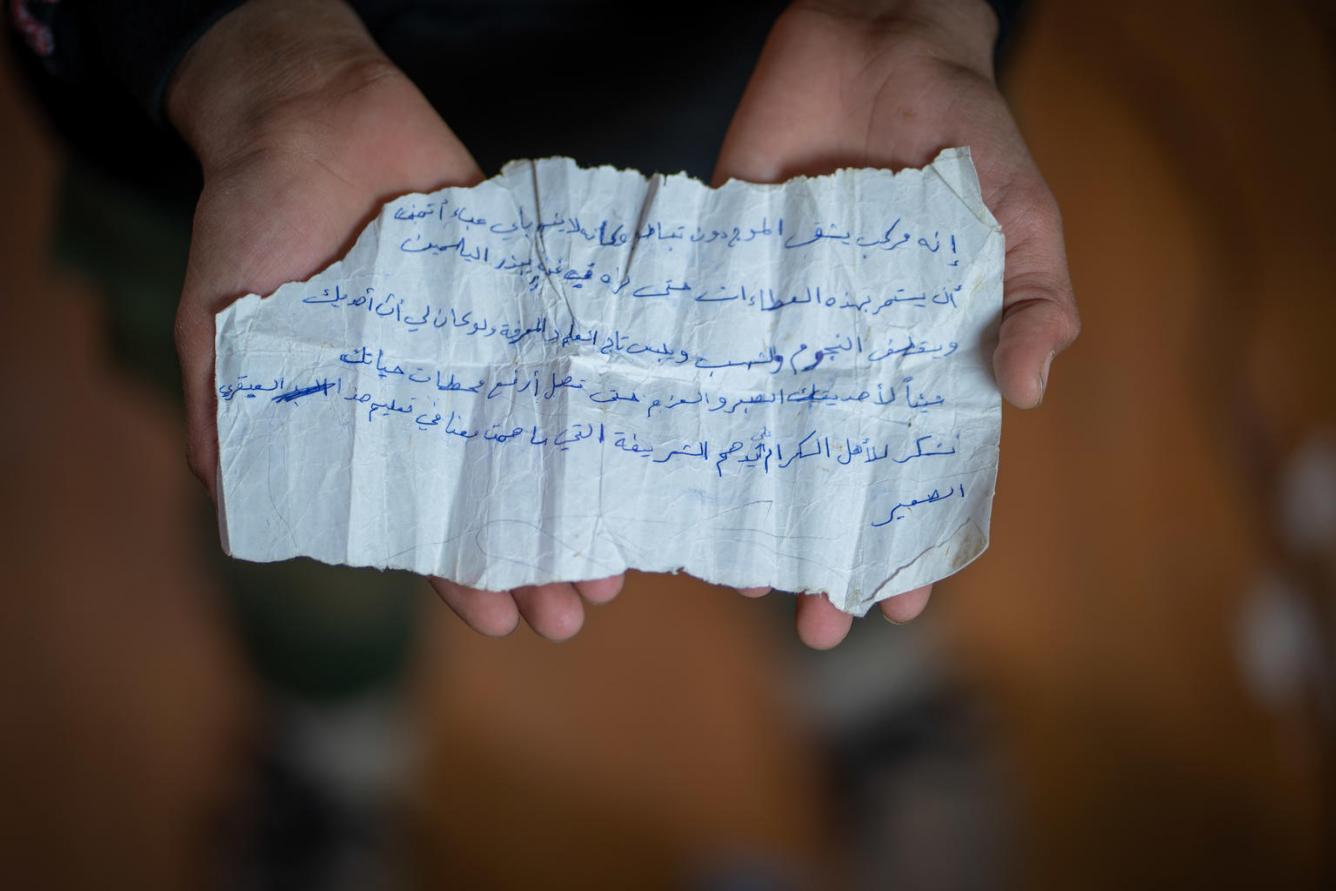 إنه مركب يشق الموج دون تباطؤ وكأنه لايشعر بأي عباء أتمنى
أن يستمر بهذه العطاءات حتى نراه في غدٍ يبذر الياسمين
ويقطف النجوم والشهب ويلبس تاج العلم والمعرفة ولو كان لي أن أهديك
شيئاً لأهديتك الصبر والعزم حتى تصل أرفع محطات حياتك
نشكر للأهل الكرام أيدهم الشريفة التي ساهمت معنا في تعليم هذا العبقري
الصغير